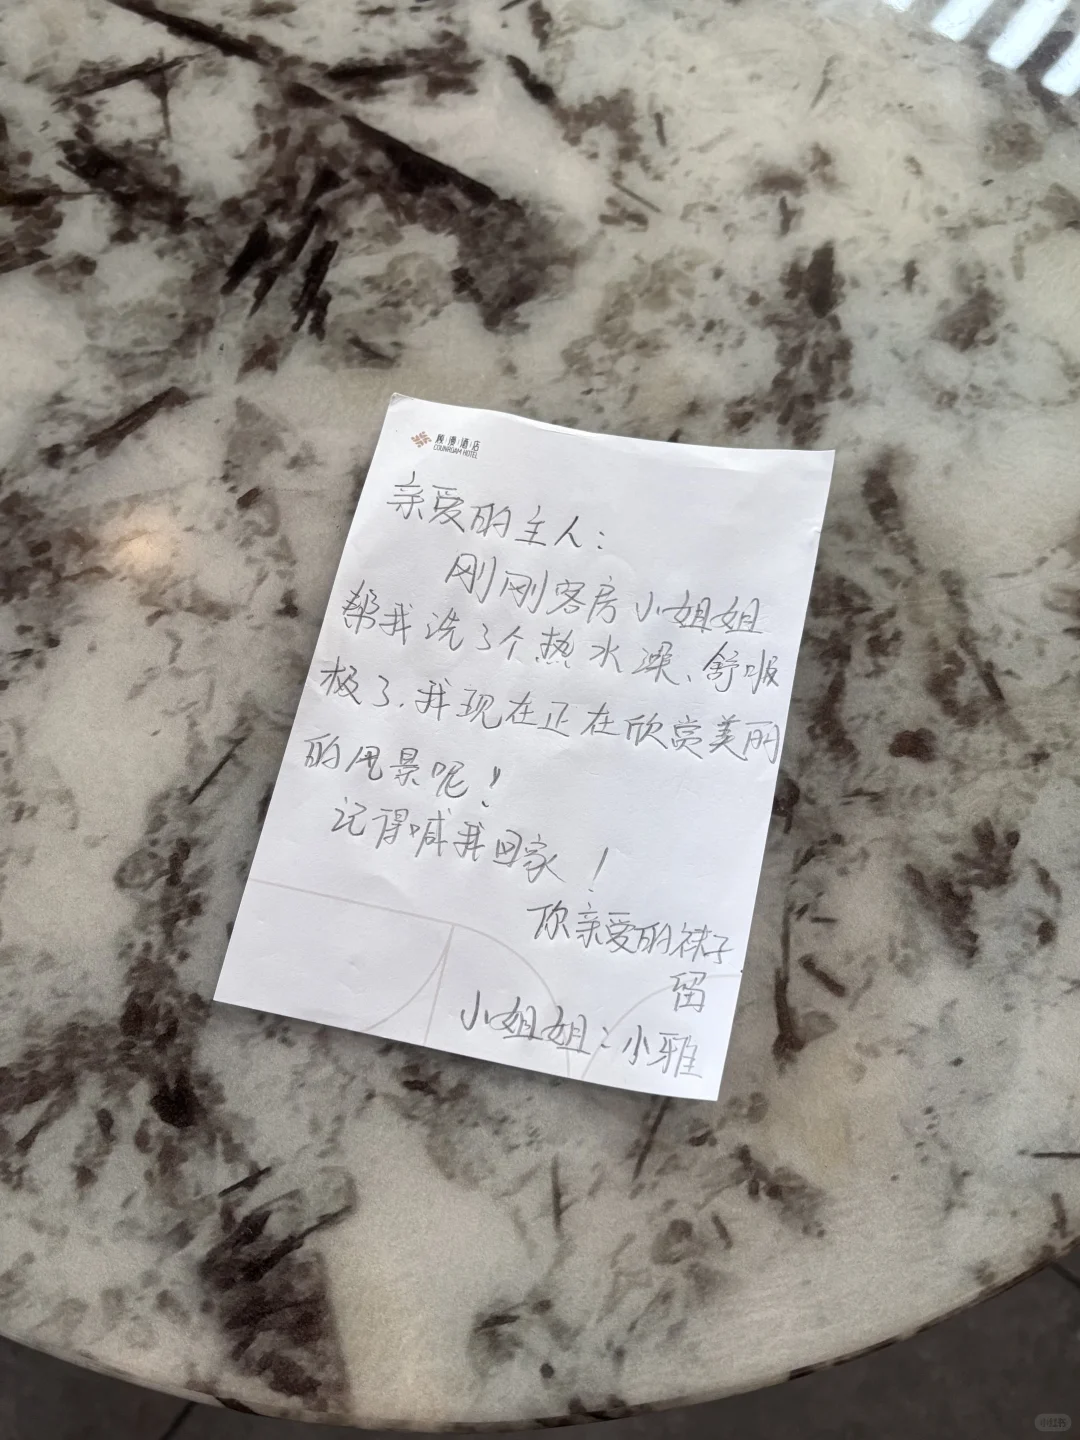 顾漫酒店
COUNROAM HOTEL
亲爱的主人：
刚刚客房小姐姐
帮我洗了个热水澡、舒服
极了.我现在正在欣赏美丽
的风景呢！
记得喊我回家！
你亲爱的袜子
留
小姐姐：小雅
小红书